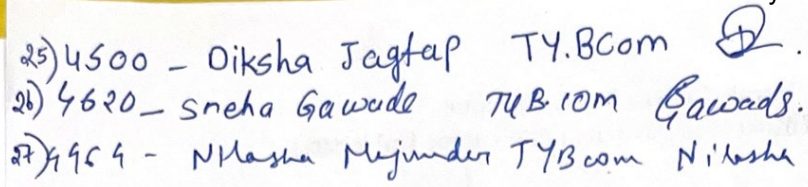 25) 4500 - Diksha Jagtap TY.BCom
26) 4620 - Sneha Gawade TYB.com Gawads.
27) 4464 - Nilasha Mujumder TYBcom Nilasha